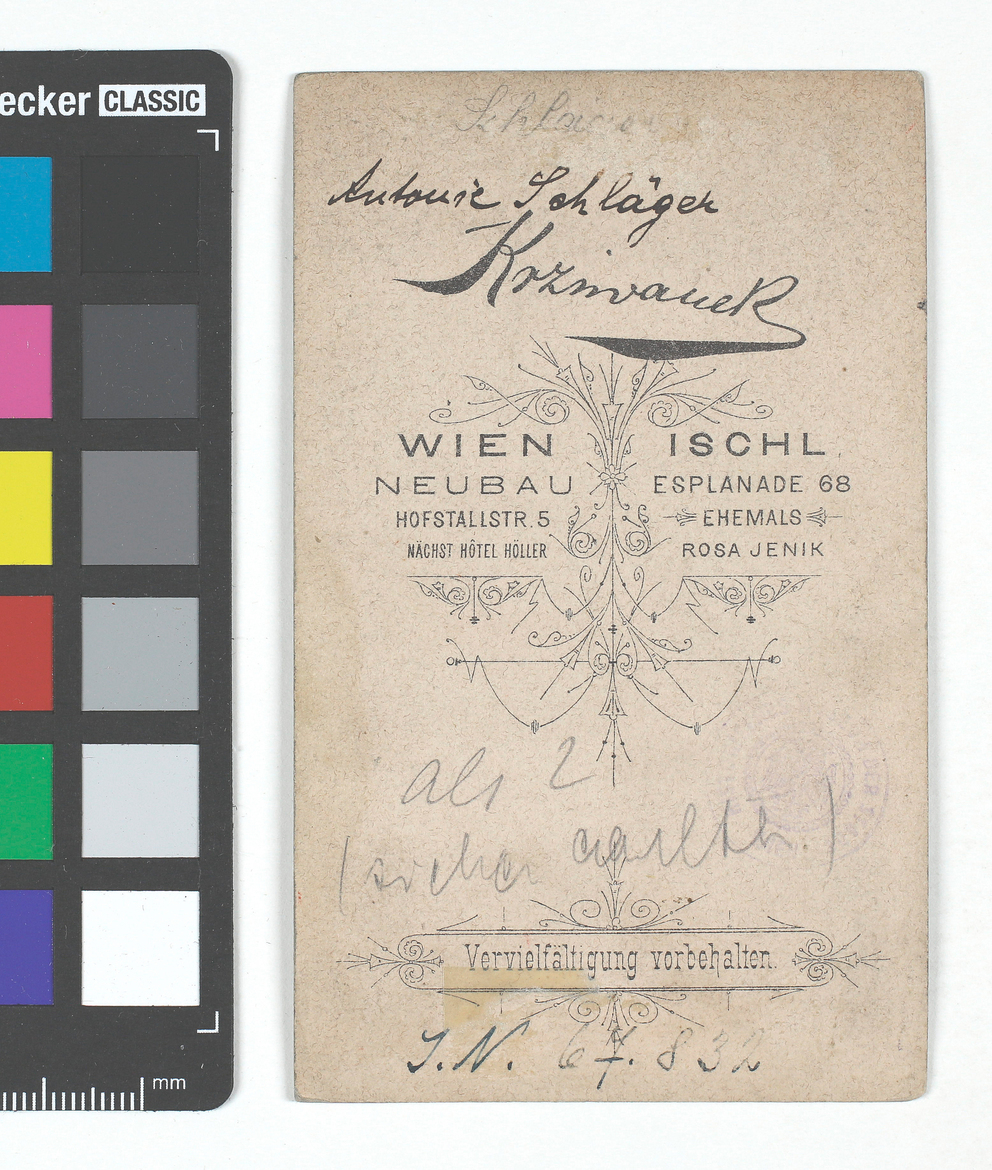 ecker CLASSIC
Antonie Schläger
Krziwanek
WIEN
NEUBAU
HOFSTALLSTR. 5
NÄCHST HÔTEL HÖLLER
ISCHL,
ESPLANADE 68
EHEMALS
ROSA JENIK
als 2
Vervielfältigung vorbehalten.
J.N. 67.832
mm